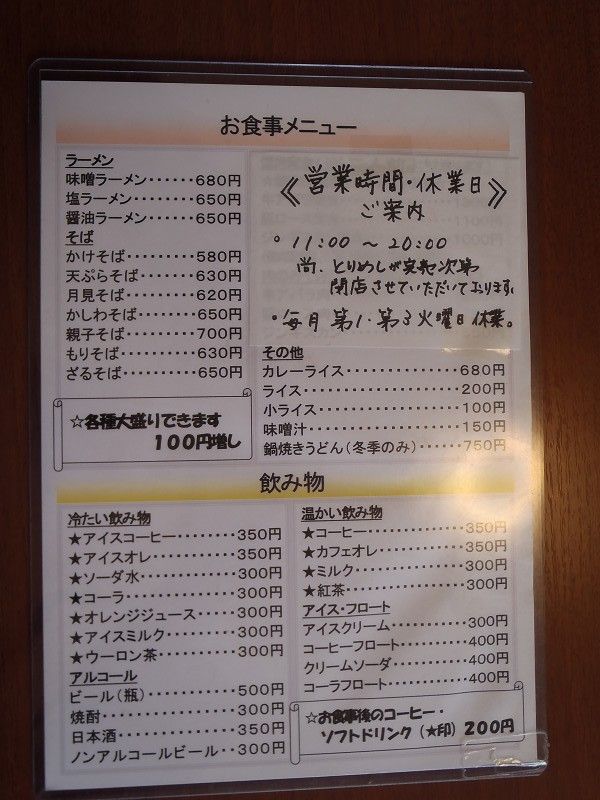 お食事メニュー
ラーメン
味噌ラーメン・・・・・・680円
塩ラーメン・・・・・・・・650円
醤油ラーメン・・・・・・650円
そば
かけそば・・・・・・・・・・580円
天ぷらそば・・・・・・・・630円
月見そば・・・・・・・・・・620円
かしわそば・・・・・・・・650円
親子そば・・・・・・・・・・700円
もりそば・・・・・・・・・・630円
ざるそば・・・・・・・・・・650円
☆各種大盛りできます
100円増し
《営業時間・休業日》
ご案内
° 11:00 ～ 20:00
尚、とりめしが完売次第
閉店させていただいております。
・毎月 第1・第3火曜日休業。
その他
カレーライス・・・・・・・・・・・・・・680円
ライス・・・・・・・・・・・・・・・・・・・・200円
小ライス・・・・・・・・・・・・・・・・・・100円
味噌汁・・・・・・・・・・・・・・・・・・・・150円
鍋焼きうどん（冬季のみ）・・・・・・750円
飲み物
冷たい飲み物
★アイスコーヒー・・・・・・・・350円
★アイスオレ・・・・・・・・・・・・350円
★ソーダ水・・・・・・・・・・・・・・300円
★コーラ・・・・・・・・・・・・・・・・300円
★オレンジジュース・・・・・・300円
★アイスミルク・・・・・・・・・・300円
★ウーロン茶・・・・・・・・・・・・300円
アルコール
ビール（瓶）・・・・・・・・・・・・500円
焼酎・・・・・・・・・・・・・・・・・・・・300円
日本酒・・・・・・・・・・・・・・・・・・350円
ノンアルコールビール・・300円
温かい飲み物
★コーヒー・・・・・・・・・・・・・・350円
★カフェオレ・・・・・・・・・・・・350円
★ミルク・・・・・・・・・・・・・・・・300円
★紅茶・・・・・・・・・・・・・・・・・・300円
アイス・フロート
アイスクリーム・・・・・・・・・・300円
コーヒーフロート・・・・・・・・400円
クリームソーダ・・・・・・・・・・400円
コーラフロート・・・・・・・・・・400円
☆お食事後のコーヒー・
ソフトドリンク（★印）200円